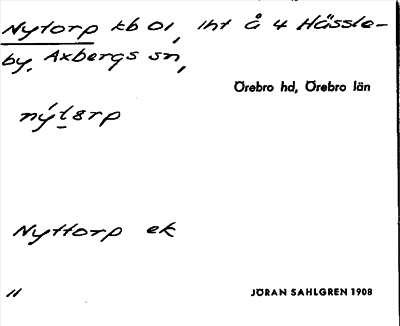 Nytorp kb 01, lht å 4 Hässle-
by. Axbergs sn,
Örebro hd, Örebro län
nýtɛrp
Nyttorp ek
11
JÖRAN SAHLGREN 1908